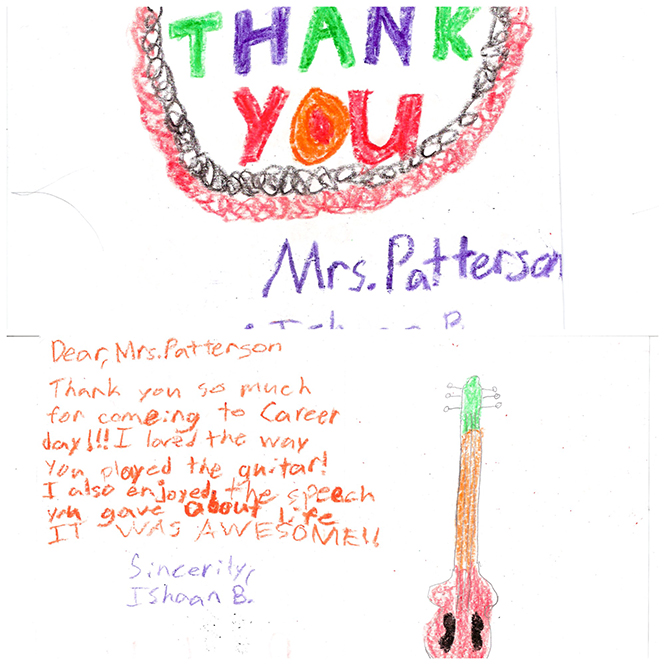 THANK
YOU
Mrs. Patterson
Ishaan B.
Dear, Mrs. Patterson
Thank you so much
for comeing to Career
day!!! I loved the way
you played the guitar!
I also enjoyed, the speech
you gave about life
IT WAS AWESOME!!
Sincerily,
Ishaan B.